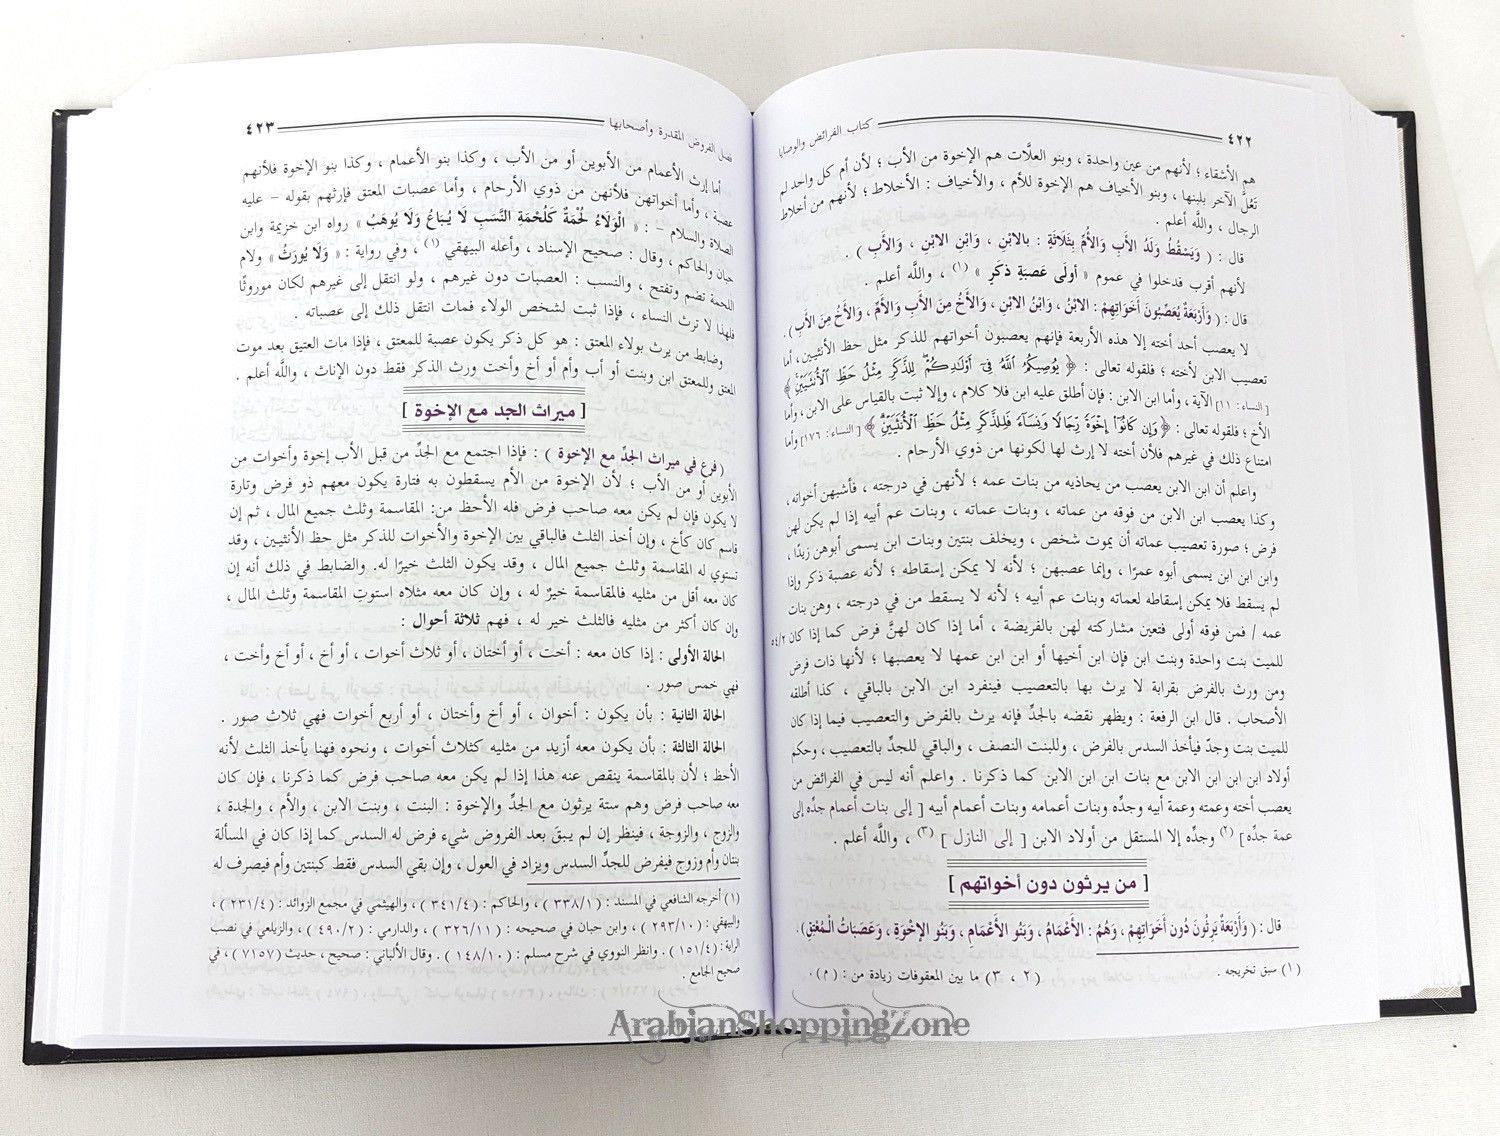 ٤٢٢ كتاب الفرائض والوصايا
هم الأشقاء ؛ لأنهم من عين واحدة ، وبنو العلَّات هم الإخوة من الأب ؛ لأن أم كل واحد لم
تَعُلَّ الآخر بلبنها ، وبنو الأخياف هم الإخوة للأم ، والأخياف : الأخلاط ؛ لأنهم من أخلاط
الرجال ، واللَّه أعلم .
قال : ( وَيَسْقُطُ وَلَدُ الأَبِ وَالأُمِّ بِثَلَاثَةٍ : بالابْنِ ، وَابْنِ الابْنِ ، وَالأَبِ ) .
لأنهم أقرب فدخلوا في عموم « أولَى عَصبَةٍ ذكَرٍ » (١) ، واللَّه أعلم .
قال : ( وَأَرْبَعَةٌ يُعَصِّبُونَ أَخَوَاتِهِمْ : الابْنُ ، وَابْنُ الابْنِ ، وَالأَخُ مِنَ الأَبِ وَالأُمِّ ، وَالأَخُ مِنَ الأَبِ ) .
لا يعصب أحد أخته إلا هذه الأربعة فإنهم يعصبون أخواتهم للذكر مثل حظ الأنثيين ، أما
تعصيب الابن لأخته ؛ فلقوله تعالى : ﴿ يُوصِيكُمُ اللَّهُ فِي أَوْلَادِكُمْ لِلذَّكَرِ مِثْلُ حَظِّ الْأُنثَيَيْنِ ﴾
[ النساء : ١١ ] الآية ، وأما ابن الابن : فإن أطلق عليه ابن فلا كلام ، وإلا ثبت بالقياس على الابن ، وأما
الأخ ؛ فلقوله تعالى : ﴿ وَإِن كَانُوا إِخْوَةً رِّجَالًا وَنِسَاءً فَلِلذَّكَرِ مِثْلُ حَظِّ الْأُنثَيَيْنِ ﴾ [ النساء : ١٧٦ ] وأما
امتناع ذلك في غيرهم فلأن أخته لا إرث لها لكونها من ذوي الأرحام .
واعلم أن ابن الابن يعصب من يحاذيه من بنات عمه ؛ لأنهن في درجته ، فأشبهن أخواته ،
وكذا يعصب ابن الابن من فوقه من عماته ، وبنات عماته ، وبنات عم أبيه إذا لم يكن لهن
فرض ؛ صورة تعصيب عماته أن يموت شخص ، ويخلف بنتين وبنات ابن يسمى أبوهن زيدًا ،
وابن ابن ابن يسمى أبوه عمرًا ، وإنما عصبهن ؛ لأنه لا يمكن إسقاطه ؛ لأنه عصبة ذكر وإذا
لم يسقط فلا يمكن إسقاطه لعماته وبنات عم أبيه ؛ لأنه لا يسقط من في درجته ، وهن بنات
عمه / فمن فوقه أولى فتعين مشاركته لهن بالفريضة ، أما إذا كان لهنَّ فرض كما إذا كان ٥٤/٢
للميت بنت واحدة وبنت ابن فإن ابن أخيها أو ابن ابن عمها لا يعصبها ؛ لأنها ذات فرض
ومن ورث بالفرض بقرابة لا يرث بها بالتعصيب فينفرد ابن الابن بالباقي ، كذا أطلقه
الأصحاب . قال ابن الرفعة : ويظهر نقضه بالجدِّ فإنه يرث بالفرض والتعصيب فيما إذا كان
للميت بنت وجدّ فيأخذ السدس بالفرض ، وللبنت النصف ، والباقي للجدِّ بالتعصيب ، وحكم
أولاد ابن ابن الابن مع بنات ابن ابن الابن كما ذكرنا . واعلم أنه ليس في الفرائض من
يعصب أخته وعمته وعمة أبيه وجدِّه وبنات أعمامه وبنات أعمام أبيه [ إلى بنات أعمام جدِّه إلى
عمة جدِّه ] (٢) وجدِّه إلا المستقل من أولاد الابن [ إلى النازل ] (٣) ، واللَّه أعلم .
[ من يرثون دون أخواتهم ]
قال : ( وَأَرْبَعَةٌ يَرِثُونَ دُونَ أَخَوَاتِهِمْ ، وَهُمْ : الأَعْمَامُ ، وَبَنُو الأَعْمَامِ ، وَبَنُو الإخْوَةِ ، وَعَصَبَاتُ الْمُعْتِقِ ) .
(١) سبق تخريجه . (٢ ، ٣) ما بين المعقوفات زيادة من : (م) .
فصل الفروض المقدرة وأصحابها ٤٢٣
أما إرث الأعمام من الأبوين أو من الأب ، وكذا بنو الأعمام ، وكذا بنو الإخوة فلأنهم
عصبة ، وأما أخواتهن فلأنهن من ذوي الأرحام ، وأما عصبات المعتق فإرثهم بقوله – عليه
الصلاة والسلام – : « الْوَلَاءُ لُحْمَةٌ كَلُحْمَةِ النَّسَبِ لَا يُبَاعُ وَلَا يُوهَبُ » رواه ابن خزيمة وابن
حبان والحاكم ، وقال : صحيح الإسناد ، وأعله البيهقي (١) ، وفي رواية : « وَلَا يُورَثُ » ولام
اللحمة تضم وتفتح ، والنسب : العصبات دون غيرهم ، ولو انتقل إلى غيرهم لكان موروثًا
فلهذا لا ترث النساء ، فإذا ثبت لشخص الولاء فمات انتقل ذلك إلى عصباته .
وضابط من يرث بولاء المعتق : هو كل ذكر يكون عصبة للمعتق ، فإذا مات العتيق بعد موت
المعتق وللمعتق ابن وبنت أو أب وأم أو أخ وأخت ورث الذكر فقط دون الإناث ، واللَّه أعلم .
[ ميراث الجد مع الإخوة ]
( فرع في ميراث الجدِّ مع الإخوة ) : فإذا اجتمع مع الجدِّ من قبل الأب إخوة وأخوات من
الأبوين أو من الأب ؛ لأن الإخوة من الأم يسقطون به فتارة يكون معهم ذو فرض وتارة
لا يكون فإن لم يكن معه صاحب فرض فله الأحظ من : المقاسمة وثلث جميع المال ، ثم إن
قاسم كان كأخ ، وإن أخذ الثلث فالباقي بين الإخوة والأخوات للذكر مثل حظ الأنثيين ، وقد
تستوي له المقاسمة وثلث جميع المال ، وقد يكون الثلث خيرًا له . والضابط في ذلك أنه إن
كان معه أقل من مثليه فالمقاسمة خيرٌ له ، وإن كان معه مثلاه استوتِ المقاسمة وثلث المال ،
وإن كان أكثر من مثليه فالثلث خير له ، فهم ثلاثة أحوال :
الحالة الأولى : إذا كان معه : أخت ، أو أختان ، أو ثلاث أخوات ، أو أخ ، أو أخ وأخت ،
فهي خمس صور .
الحالة الثانية : بأن يكون : أخوان ، أو أخ وأختان ، أو أربع أخوات فهي ثلاث صور .
الحالة الثالثة : بأن يكون معه أزيد من مثليه كثلاث أخوات ، ونحوه فهنا يأخذ الثلث لأنه
الأحظ ؛ لأن بالمقاسمة ينقص عنه هذا إذا لم يكن معه صاحب فرض كما ذكرنا ، فإن كان
معه صاحب فرض وهم ستة يرثون مع الجدِّ والإخوة : البنت ، وبنت الابن ، والأم ، والجدة ،
والزوج ، والزوجة ، فينظر إن لم يبقَ بعد الفروض شيء فرض له السدس كما إذا كان في المسألة
بنتان وأم وزوج فيفرض للجدِّ السدس ويزاد في العول ، وإن بقي السدس فقط كبنتين وأم فيصرف له
(١) أخرجه الشافعي في المسند : ( ٣٣٨/١ ) ، والحاكم : ( ٣٤١/٤ ) ، والهيثمي في مجمع الزوائد : ( ٢٣١/٤ ) ،
والبيهقي : ( ٢٩٣/١٠ ) ، وابن حبان في صحيحه : ( ٣٢٦/١١ ) ، والدارمي : ( ٤٩٠/٢ ) ، والزيلعي في نصب
الراية : ( ١٥١/٤ ) . وانظر النووي في شرح مسلم : ( ١٤٨/١٠ ) . وقال الألباني : صحيح ، حديث ( ٧١٥٧ ) ، في
صحيح الجامع .
ArabianShoppingZone